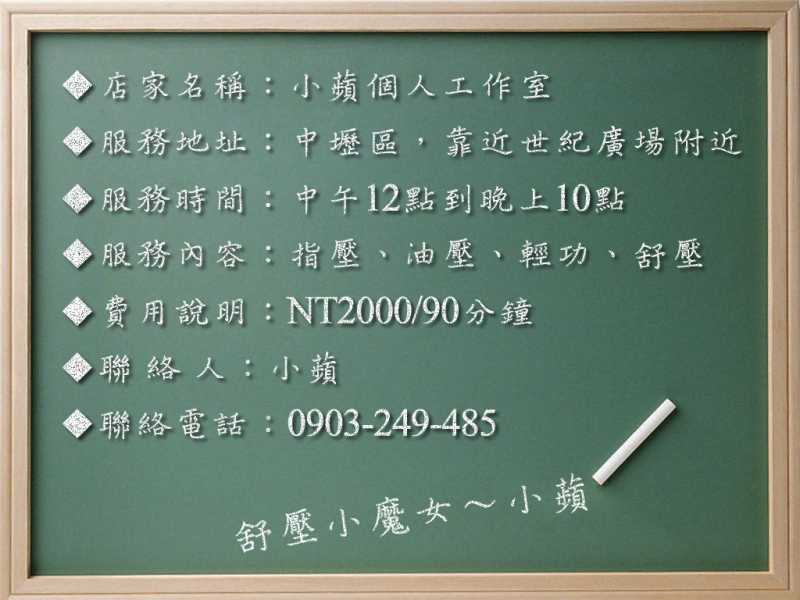 ◆店家名稱：小蘋個人工作室
◆服務地址：中壢區，靠近世紀廣場附近
◆服務時間：中午12點到晚上10點
◆服務內容：指壓、油壓、輕功、舒壓
◆費用說明：NT2000/90分鐘
◆聯絡人：小蘋
◆聯絡電話：0903-249-485
舒壓小魔女～小蘋